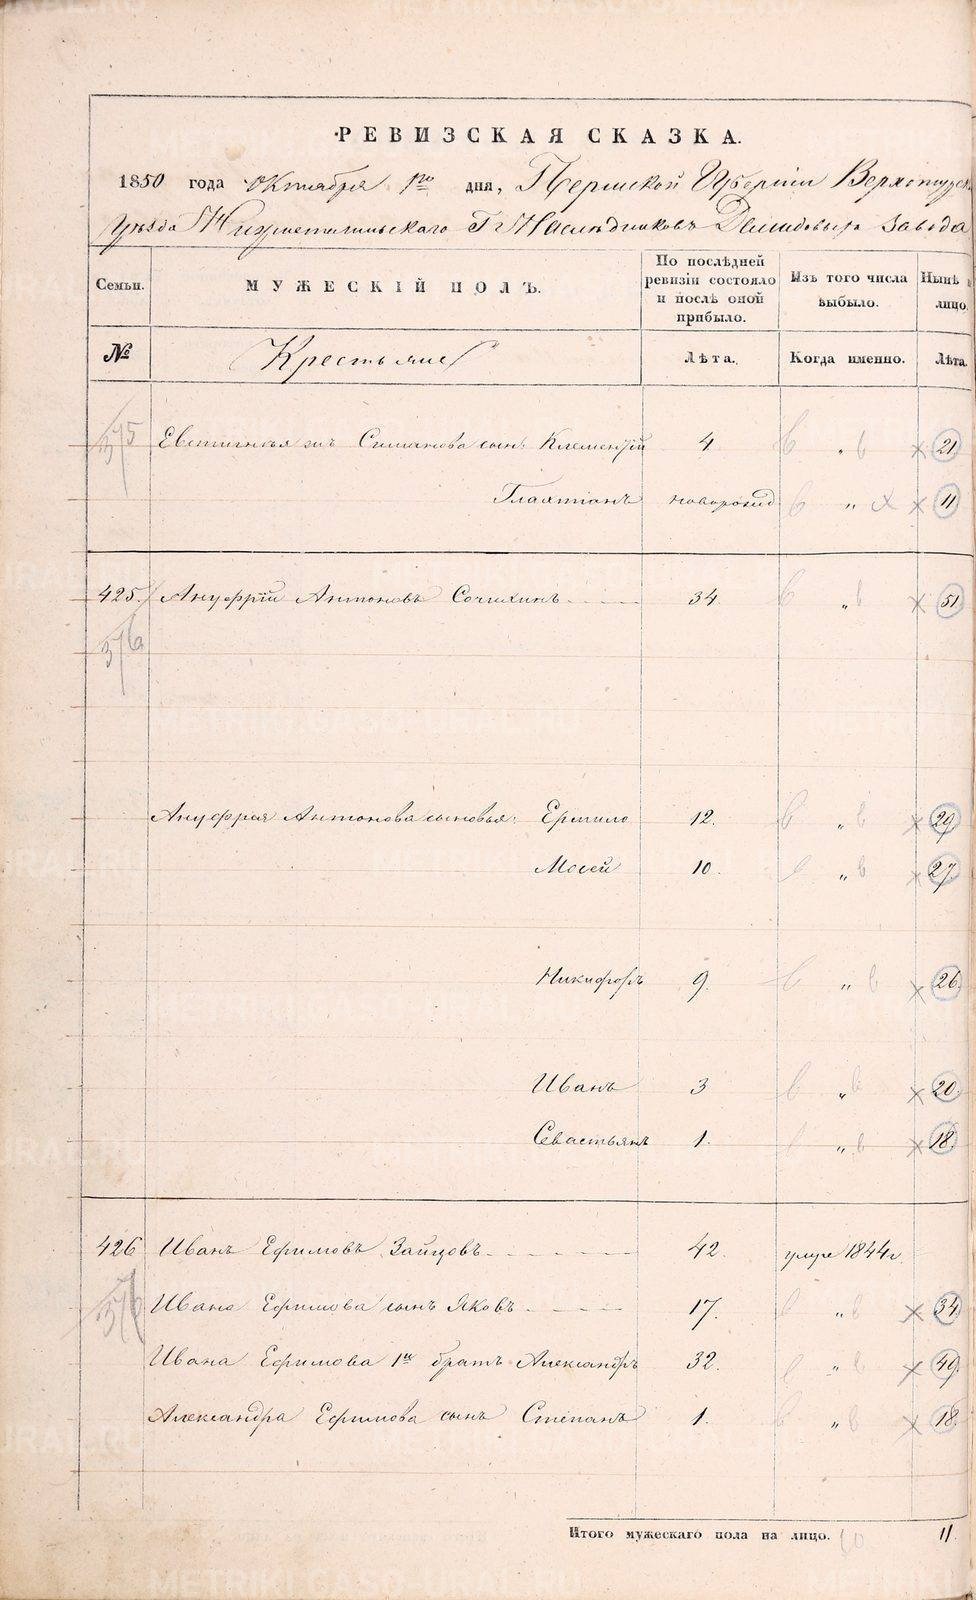 РЕВИЗСКАЯ СКАЗКА.
1850 года Октября 1го дня, Пермской Губернии Верхотурск
Уезда Нижнетагильскаго Гг Наследниковъ Демидовыхъ Завода
Семьи. МУЖЕСКІЙ ПОЛЪ. По послѣдней ревизіи состояло и послѣ оной прибыло. Изъ того числа выбыло. Нынѣ лицо.
№ Крестьяне Лѣта. Когда именно. Лѣта.
375 Евстигнѣя Симанова сынъ Клементій 4 „ 21
Галахтіонъ новорожд „ 11
425. Ануфрій Антоновъ Сочихинъ 34. „ 51
376
Ануфрія Антонова сыновья: Ермило 12. „ 29
Мосей 10. „ 27.
Никифоръ 9. „ 26.
Иванъ 3 „ 20.
Севастьянъ 1. „ 18.
426 Иванъ Ефимовъ Зайцовъ 42. умре 1844г.
Ивана Ефимова сынъ Яковъ 17. „ 34
Ивана Ефимова 1й братъ Александръ 32. „ 49.
Александра Ефимова сынъ Степанъ 1. „ 18
Итого мужескаго пола на лицо. 10 11.
METRIKI.CASO-URAL.RU